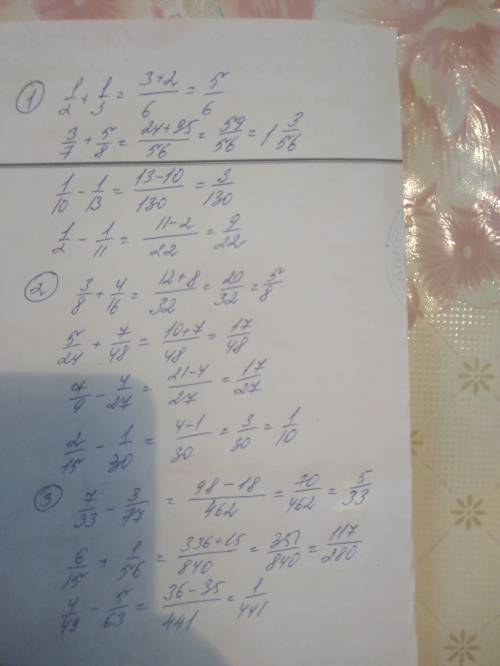 1 1/2 + 1/3 = 3+2/6 = 5/6
3/7 + 5/8 = 24+35/56 = 59/56 = 1 3/56
1/10 - 1/13 = 13-10/130 = 3/130
1/2 - 1/11 = 11-2/22 = 9/22
2 3/8 + 4/16 = 12+8/32 = 20/32 = 5/8
5/24 + 7/48 = 10+7/48 = 17/48
7/9 - 4/27 = 21-4/27 = 17/27
2/15 - 1/30 = 4-1/30 = 3/30 = 1/10
3 7/33 - 3/77 = 98-18/462 = 70/462 = 5/33
6/15 + 1/56 = 336+15/840 = 351/840 = 117/280
4/49 - 5/63 = 36-35/441 = 1/441